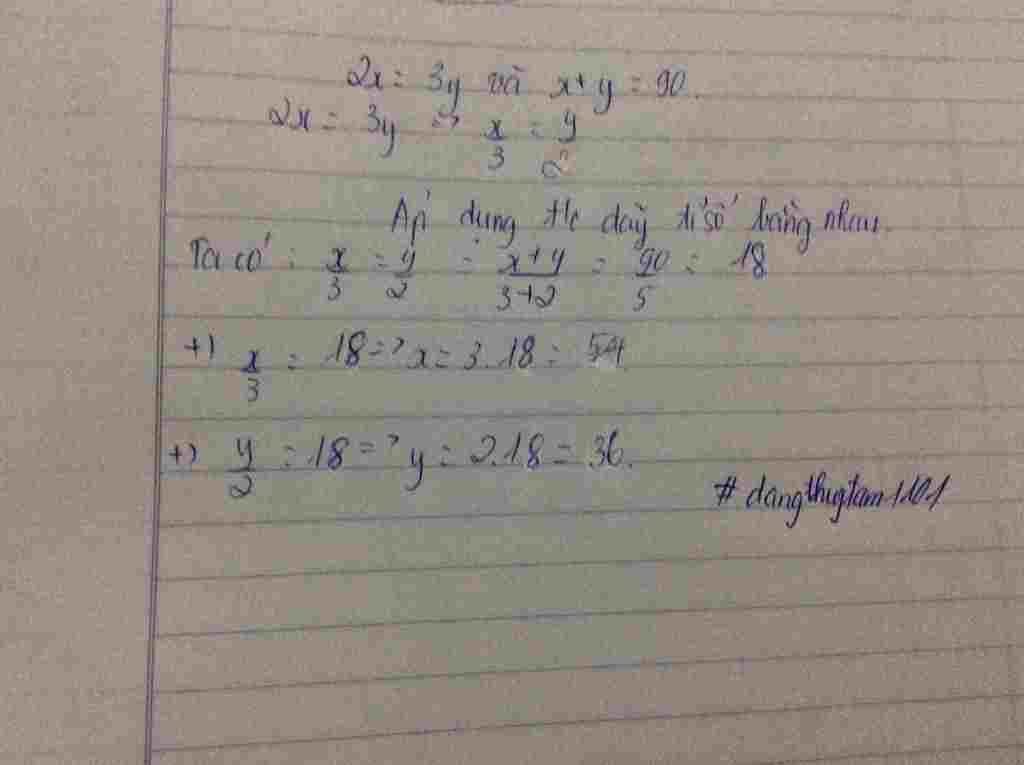 2x = 3y và x+y = 90.
2x = 3y => x/3 = y/2
Áp dụng t/c dãy tỉ số bằng nhau.
Ta có: x/3 = y/2 = x+y/3+2 = 90/5 = 18
+) x/3 = 18 => x = 3.18 = 54
+) y/2 = 18 => y = 2.18 = 36.
# dangthuytam1101